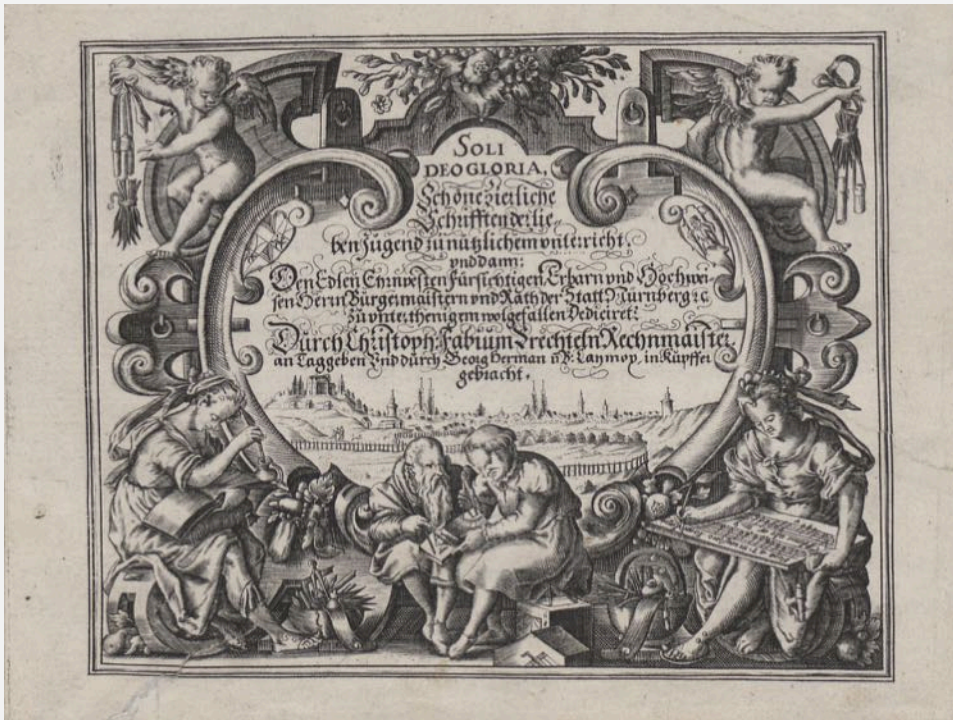 SOLI
DEO GLORIA.
Schöne zierliche
Schrifften der lie-
ben Jugend zu nützlichem vnterricht.
vnd dann:
Den Edlen Ehrnvesten Fürsichtigen, Erbarn vnd Hochwei-
sen Herrn Bürgermaistern vnd Räth der Statt Nürnberg ꝛc.
Zu vnterthenigem wolgefallen Dediciret:
Dürch Christoph: Fabium Brechteln Rechnmaister
an Tag geben Vnd dürch Georg Herman in Küpffer
gebracht.